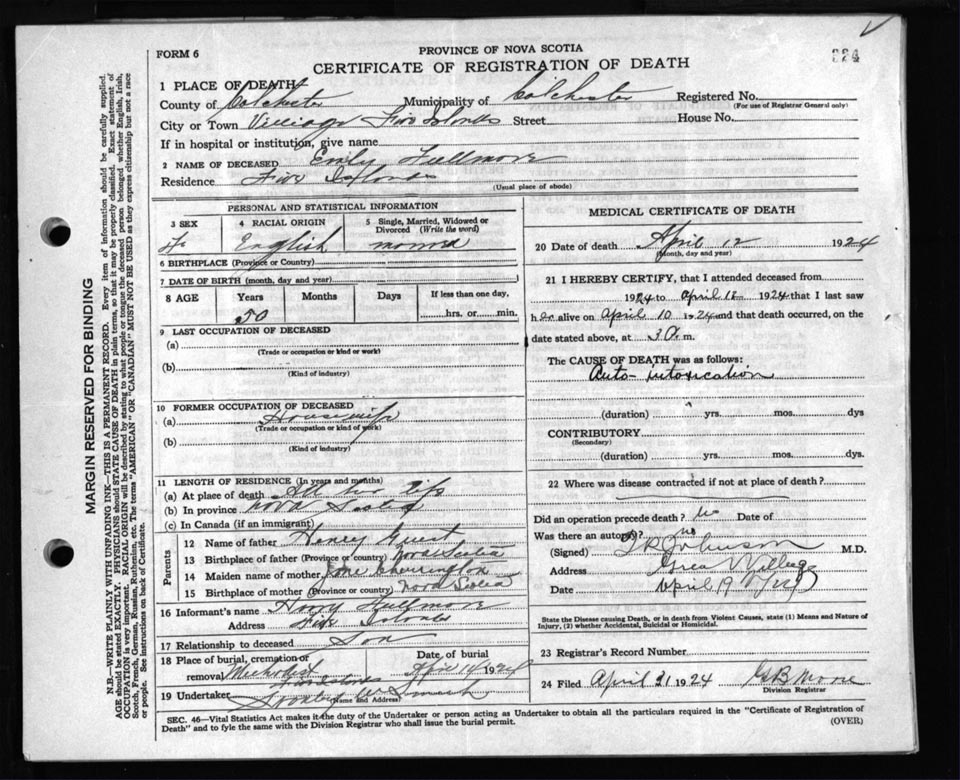 FORM 6
PROVINCE OF NOVA SCOTIA
CERTIFICATE OF REGISTRATION OF DEATH
224
1 PLACE OF DEATH
County of Colchester Municipality of Colchester Registered No.
(For use of Registrar General only)
City or Town Village Five Islands Street House No.
If in hospital or institution, give name
2 NAME OF DECEASED Emily Fullmore
Residence Five Islands
(Usual place of abode)
PERSONAL AND STATISTICAL INFORMATION
3 SEX 4 RACIAL ORIGIN 5 Single, Married, Widowed or Divorced (Write the word)
F English
6 BIRTHPLACE (Province or Country)
7 DATE OF BIRTH (month, day and year)
8 AGE Years Months Days If less than one day,
50 hrs. or min.
9 LAST OCCUPATION OF DECEASED
(a)
(Trade or occupation or kind or work)
(b)
(Kind of industry)
10 FORMER OCCUPATION OF DECEASED
(a) Housewife
(Trade or occupation or kind of work)
(b)
(Kind of industry)
11 LENGTH OF RESIDENCE (In years and months)
(a) At place of death All her life
(b) In province Nova Scotia
(c) In Canada (if an immigrant)
Parents
12 Name of father Henry Guest
13 Birthplace of father (Province or country) Nova Scotia
14 Maiden name of mother Jane
15 Birthplace of mother (Province or country) Nova Scotia
16 Informant's name Harry Fullmore
Address Five Islands
17 Relationship to deceased Son
18 Place of burial, cremation or removal Methodist Date of burial April 14 1924
19 Undertaker
(Name and Address)
MEDICAL CERTIFICATE OF DEATH
20 Date of death April 12 1924
(Month, day and year)
21 I HEREBY CERTIFY, that I attended deceased from
1924 to April 12 1924 that I last saw
her alive on April 10 1924 and that death occurred, on the
date stated above, at 3 a. m.
The CAUSE OF DEATH was as follows:
Auto-intoxication
(duration) yrs. mos. dys
CONTRIBUTORY
(Secondary)
(duration) yrs. mos. dys.
22 Where was disease contracted if not at place of death?
Did an operation precede death? No Date of
Was there an autopsy? no
(Signed) Johnson M.D.
Address Great Village
Date April 19
State the Disease causing Death, or in death from Violent Causes, state (1) Means and Nature of
Injury, (2) whether Accidental, Suicidal or Homicidal.
23 Registrar's Record Number
24 Filed April 21 1924 G B Moore
Division Registrar
SEC. 46—Vital Statistics Act makes it the duty of the Undertaker or person acting as Undertaker to obtain all the particulars required in the "Certificate of Registration of
Death" and to fyle the same with the Division Registrar who shall issue the burial permit.
(OVER)
MARGIN RESERVED FOR BINDING
N.B.—WRITE PLAINLY WITH UNFADING INK—THIS IS A PERMANENT RECORD. Every item of information should be carefully supplied.
AGE should be stated EXACTLY. PHYSICIANS should STATE CAUSE OF DEATH in plain terms, so that it may be properly classified. Exact statement of
OCCUPATION is very important. RACIAL ORIGIN will be described by stating to what people or tongue the deceased person belonged whether English, Irish,
Scotch, French, German, Russian, Ruthenian, etc. The terms "AMERICAN" OR "CANADIAN" MUST NOT BE USED as they express citizenship but not a race
or people. See instructions on back of Certificate.